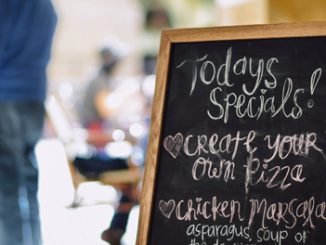 Todays
Specials!
♡ CREATE YOUR
OWN Pizza
♡ Chicken Marsala
asparagus soup of
the day